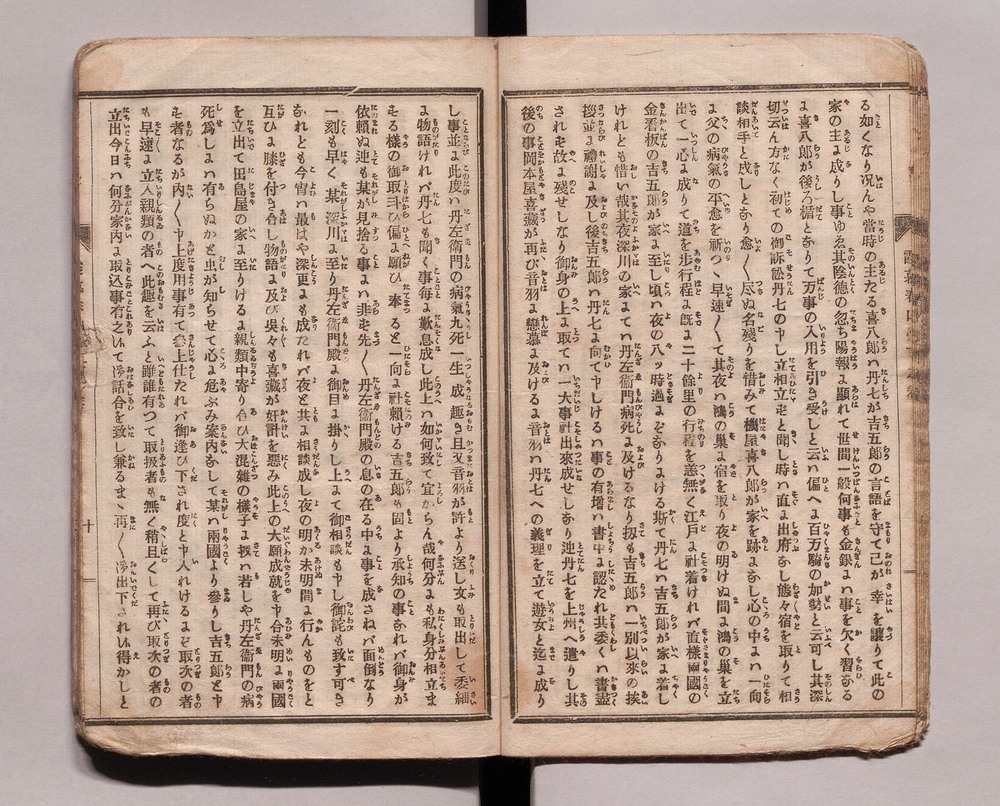 る如くなり况んや當時の主たる喜八郎ハ丹七が吉五郎の言語を守て己が幸を讓りて此の
家の主ま成りし事ゆゑ其陰德の忽ち陽報ま顯れて世間一般何事も金銀まハ事を欠く習ひなる
ま喜八郎が後ろ楯となりて万事の入用を引き受しと云ハ偏へま百万騎の加勢と云可し其深
切云ん方なく初ての御訴訟丹七の中し立相立りと聞し時ハ直ま出府なし態々宿を取りて相
談相手と成しとなり愈〱尽ぬ名殘りを惜みて機屋喜八郎が家を跡まなし心の中まハ一向
ま父の病氣の平愈を祈つゝ早速〱て其夜ハ鴻の巢ま宿を取り夜の明けぬ間ま鴻の巢を立
出て一心ま成りて道を歩行程ま既ま二十餘里の行程を恙無く江戸ま社着けれバ直樣兩國の
金看板の吉五郎が家へま至し頃ハ夜の八ッ時過まぞなりまける斯て丹七ハ吉五郎が家ま着し
けれとも惜い哉其夜深川の家まてハ丹左衞門病死ま及けるなり扨も吉五郎ハ一別以來の挨
拶並ま禮謝ま及し後吉五郎ハ丹七ま向ひて中しけるハ事の有増ハ書中ま認たれ共委くハ書盡
されぬ故ま殘せしなり御身の上ま取てハ一大事社出來成せしなり連丹七を上州へ遣りし其
後の事岡本屋喜藏が再び音羽ま戀慕ま及けるま音羽ハ丹七への義理を立て遊女と迄ま成り
し事並ま此度ハ丹左衞門の病氣九死一生成し趣き且又音羽が許より送し女も取出して委細
ま物語けれバ丹七も聞く事每ま歎息成し此上ハ如何致て宜からん哉何分まも私身分相立ま
せる樣の御取斗ひ偏ま願ひ奉ると一向ま社賴ける吉五郎も固より承知の事なれバ御身が
依賴ぬ連も某が見捨る事まハ非も先〱丹左衞門殿の息の在る中ま事を成さねバ面倒なり
一刻も早く某深川ま至り丹左衞門殿ま御目ま掛りし上まて御相談も中し御詫も致す可き
なれとも今宵ハ最はや深更まも成りたれバ夜と共ま相談成し夜の明か未明間ま行んものをと
互ひま膝を付き合し物語ま及び吳々も喜藏が奸計を惡み此上の大願成就を中合未明ま兩國
を立出て田島屋の家ま至りけるま親類中寄り合ひ大混雜の樣子ま扨ハ若しや丹左衞門の病
死為しまハ有らぬかと虫が知らせて心ま危ぶみ案內なして某ハ兩國より參りし吉五郎と中
も者なるが內〱中上度用事有て參上仕たれバ御逢ひ下され度と中入れけるまぞ取次の者
も早速ま立入親類の者へ此趣を云ふと雖誰有つて取扱者も無く稍且くして再び取次の者の
立出今日ハ何分家內ま取込事有之ゆへ御話合を致し兼るまゝ再〱御出下されい得かしと
十